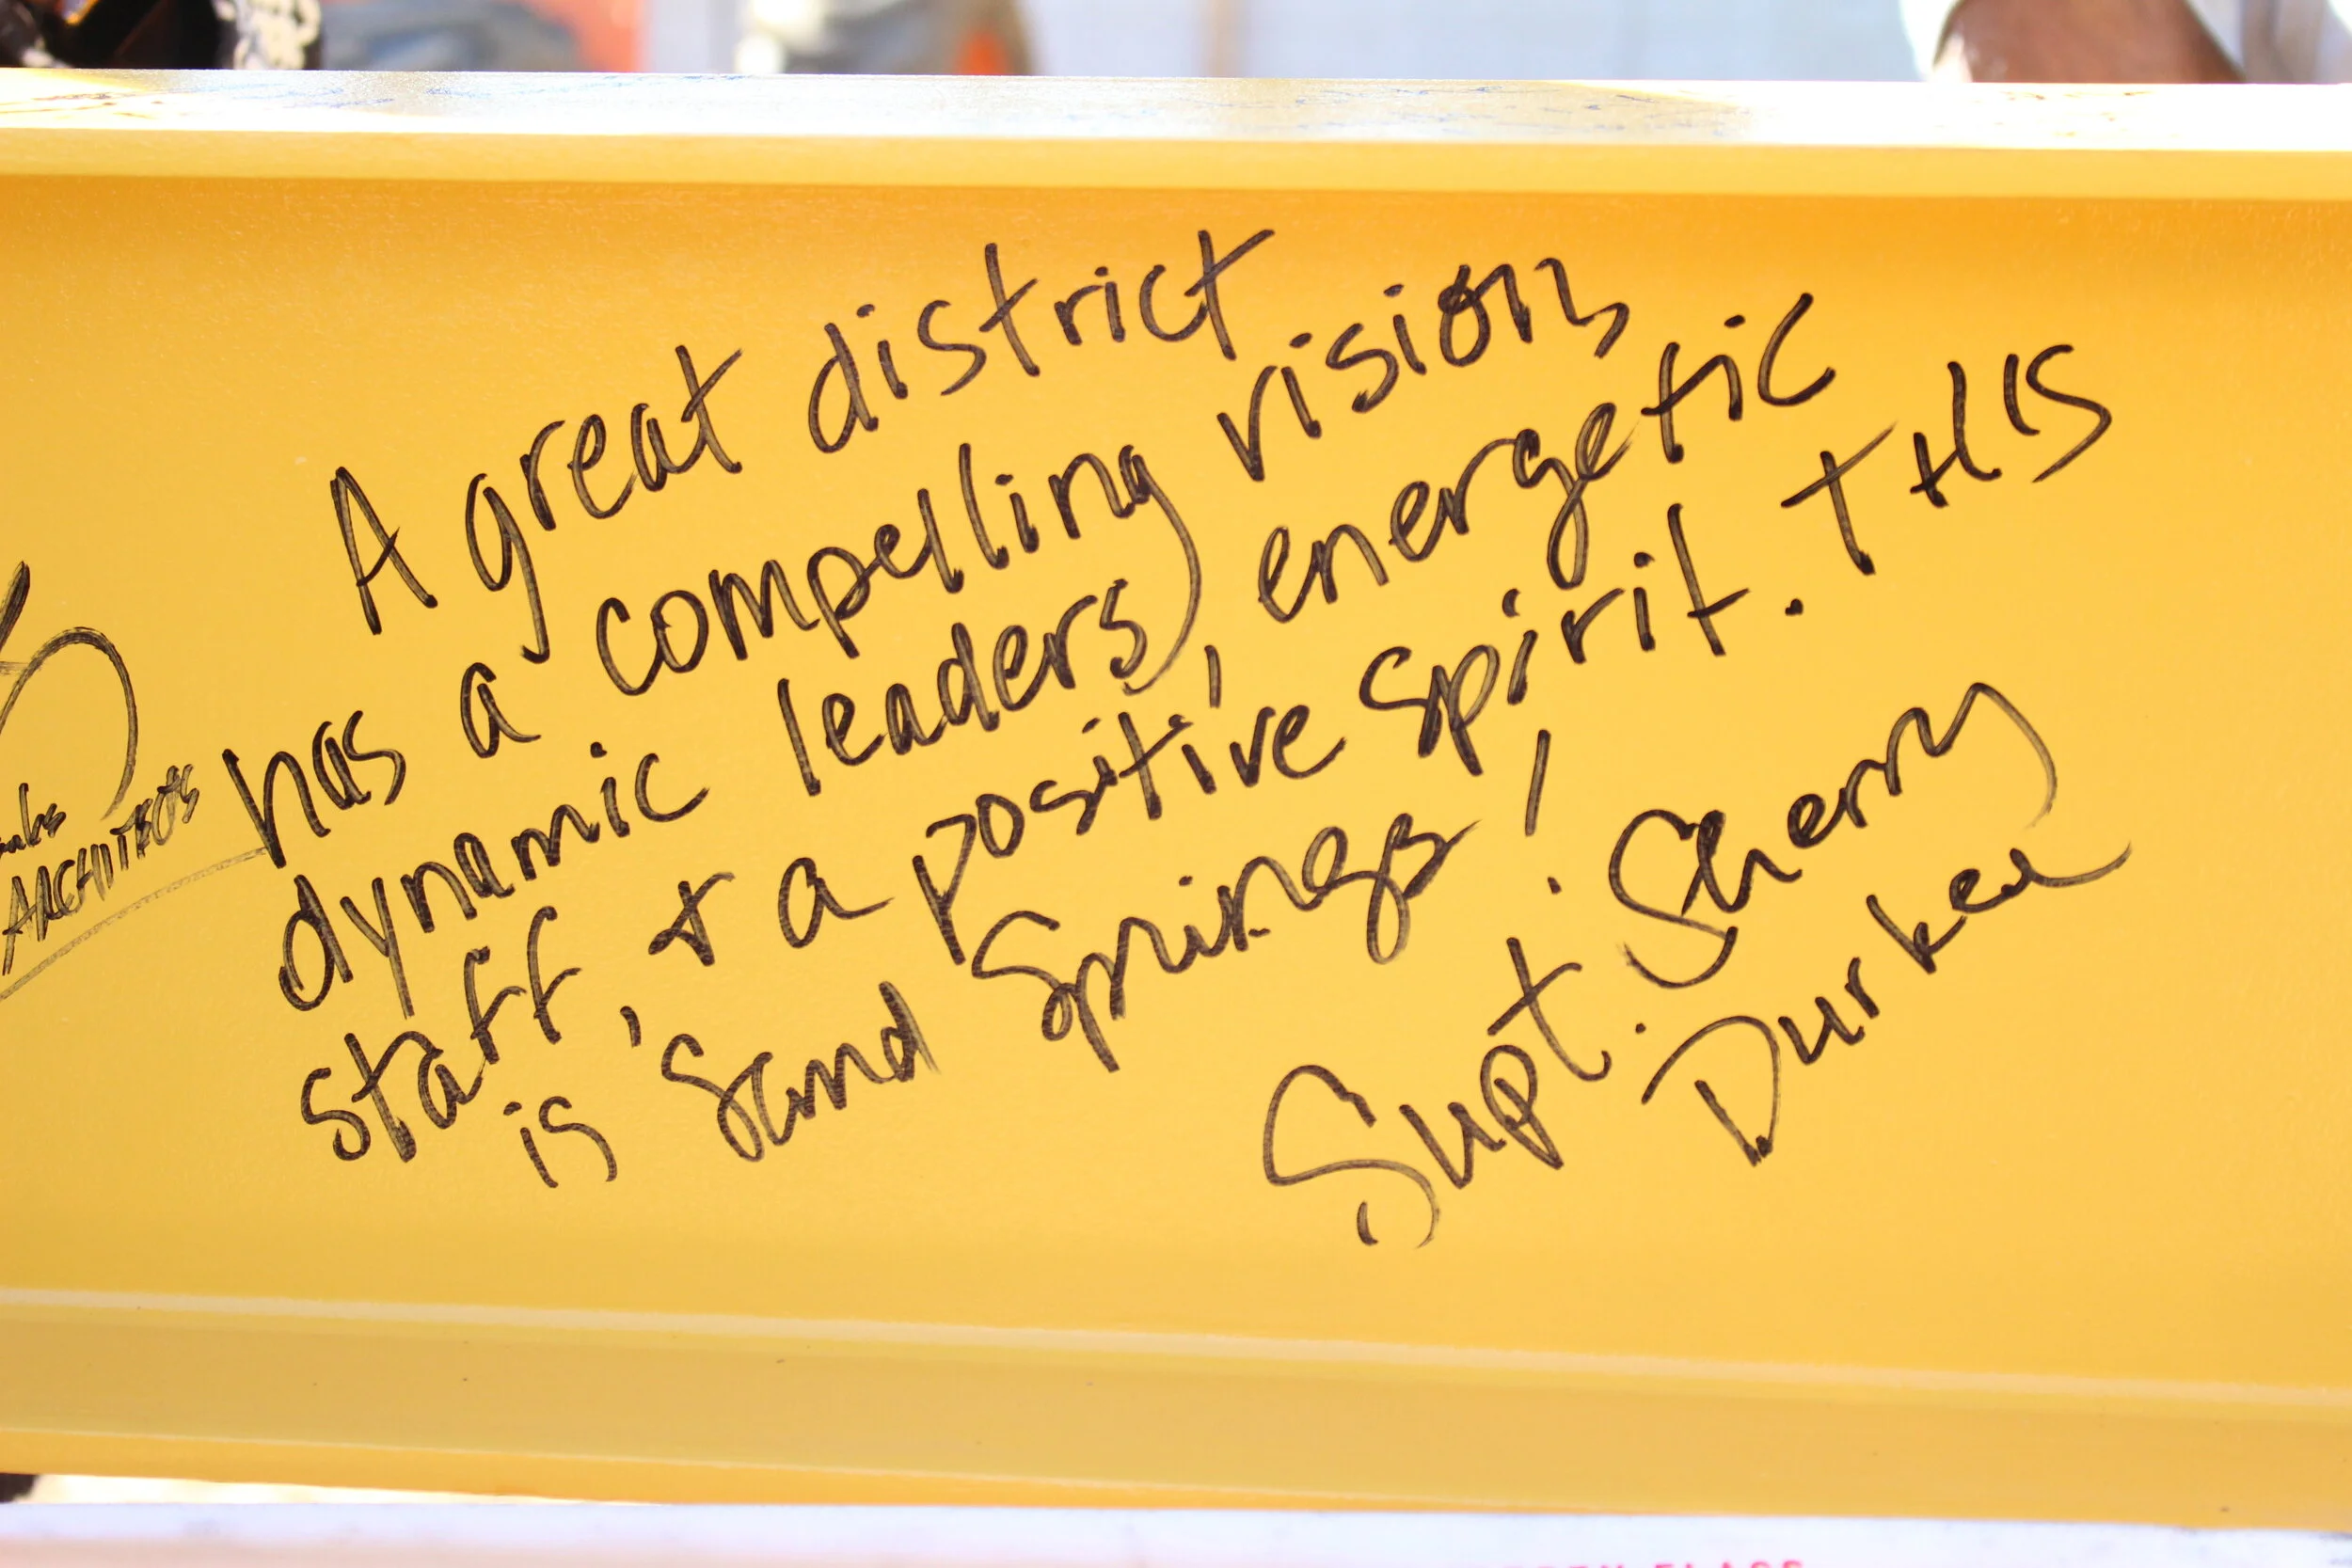 A great district
has a compelling vision,
dynamic leaders, energetic
staff, & a positive spirit. THIS
is Sand Springs!
Supt. Sherry
Durkee
ARCHITECTS